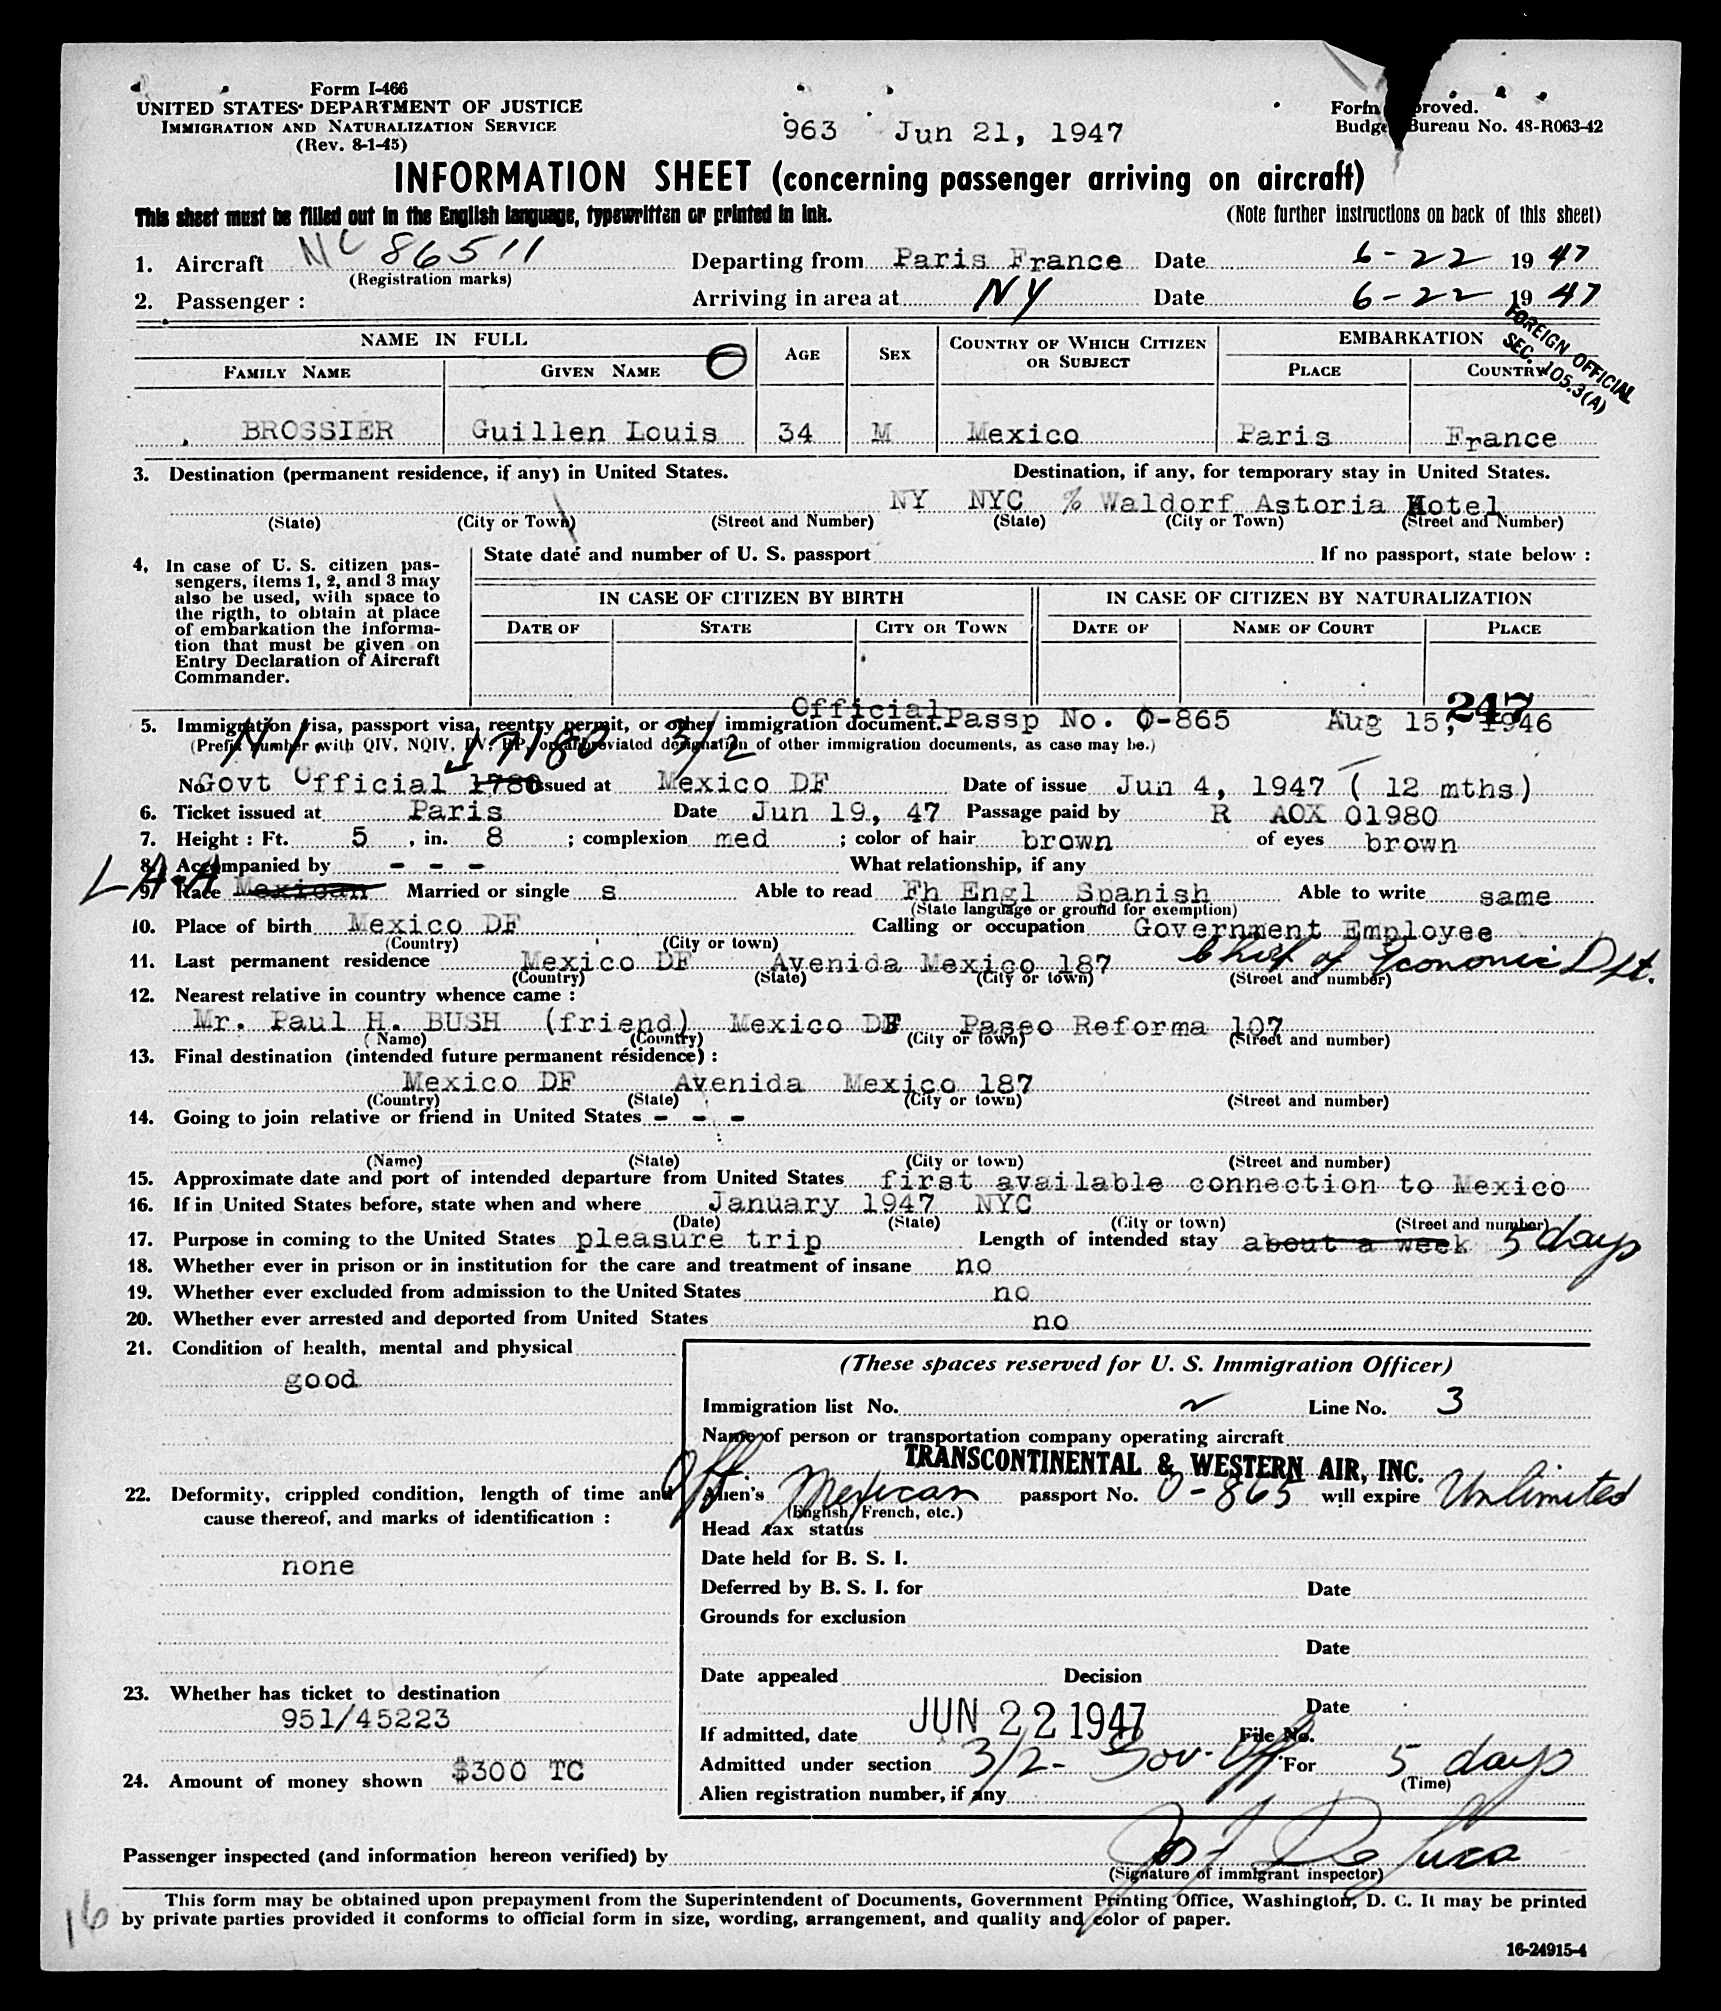 Form I-466
UNITED STATES DEPARTMENT OF JUSTICE
IMMIGRATION AND NATURALIZATION SERVICE
(Rev. 8-1-45)
963 Jun 21, 1947
Form proved.
Budge Bureau No. 43-R063-42
INFORMATION SHEET (concerning passenger arriving on aircraft)
This sheet must be filled out in the English language, typewritten or printed in ink. (Note further instructions on back of this sheet)
1. Aircraft NC 86511 Departing from Paris France Date 6-22 1947
(Registration marks)
2. Passenger : Arriving in area at NY Date 6-22 1947
FOREIGN OFFICIAL
SEC. 105.3(A)
NAME IN FULL AGE SEX COUNTRY OF WHICH CITIZEN OR SUBJECT EMBARKATION
FAMILY NAME GIVEN NAME PLACE COUNTRY
BROSSIER Guillen Louis 34 M Mexico Paris France
3. Destination (permanent residence, if any) in United States. Destination, if any, for temporary stay in United States.
NY NYC % Waldorf Astoria Hotel
(State) (City or Town) (Street and Number) (State) (City or Town) (Street and Number)
4. In case of U. S. citizen pas-
sengers, items 1, 2, and 3 may
also be used, with space to
the rigth, to obtain at place
of embarkation the informa-
tion that must be given on
Entry Declaration of Aircraft
Commander.
State date and number of U. S. passport If no passport, state below :
IN CASE OF CITIZEN BY BIRTH IN CASE OF CITIZEN BY NATURALIZATION
DATE OF STATE CITY OR TOWN DATE OF NAME OF COURT PLACE
247
5. Immigration visa, passport visa, reentry permit, or other immigration document. Official Passp No. O-865 Aug 15, 1946
(Prefix number with QIV, NQIV, PV, RP, or abbreviated designation of other immigration documents, as case may be.)
17180 3/2
No. Govt Official 1780 issued at Mexico DF Date of issue Jun 4, 1947 ( 12 mths)
6. Ticket issued at Paris Date Jun 19, 47 Passage paid by R AOX 01980
7. Height : Ft. 5 , in. 8 ; complexion med ; color of hair brown of eyes brown
8. Accompanied by - - - What relationship, if any
9. Race Mexican Married or single s Able to read Fh Engl Spanish Able to write same
(State language or ground for exemption)
10. Place of birth Mexico DF Calling or occupation Government Employee
(Country) (City or town)
Chief of Economic Dpt.
11. Last permanent residence Mexico DF Avenida Mexico 187
(Country) (State) (City or town) (Street and number)
12. Nearest relative in country whence came :
Mr. Paul H. BUSH (friend) Mexico DF Paseo Reforma 107
(Name) (Country) (City or town) (Street and number)
13. Final destination (intended future permanent résidence) :
Mexico DF Avenida Mexico 187
(Country) (State) (City or town) (Street and number)
14. Going to join relative or friend in United States - - -
(Name) (State) (City or town) (Street and number)
15. Approximate date and port of intended departure from United States first available connection to Mexico
16. If in United States before, state when and where January 1947 NYC
(Date) (State) (City or town) (Street and number)
17. Purpose in coming to the United States pleasure trip Length of intended stay about a week 5 days
18. Whether ever in prison or in institution for the care and treatment of insane no
19. Whether ever excluded from admission to the United States no
20. Whether ever arrested and deported from United States no
21. Condition of health, mental and physical
good
22. Deformity, crippled condition, length of time and
cause thereof, and marks of identification :
none
23. Whether has ticket to destination
951/45223
24. Amount of money shown $300 TC
(These spaces reserved for U. S. Immigration Officer)
Immigration list No. 2 Line No. 3
Name of person or transportation company operating aircraft
TRANSCONTINENTAL & WESTERN AIR, INC.
Off. Alien's Mexican passport No. O-865 will expire Unlimited
(English, French, etc.)
Head tax status
Date held for B. S. I.
Deferred by B. S. I. for Date
Grounds for exclusion
Date
Date appealed Decision
Date
If admitted, date JUN 22 1947 File No.
Admitted under section 3/2- Gov. Off. For 5 days
(Time)
Alien registration number, if any
Passenger inspected (and information hereon verified) by Jos De Luca
(Signature of immigrant inspector)
This form may be obtained upon prepayment from the Superintendent of Documents, Government Printing Office, Washington, D. C. It may be printed
by private parties provided it conforms to official form in size, wording, arrangement, and quality and color of paper.
16
16-24915-4